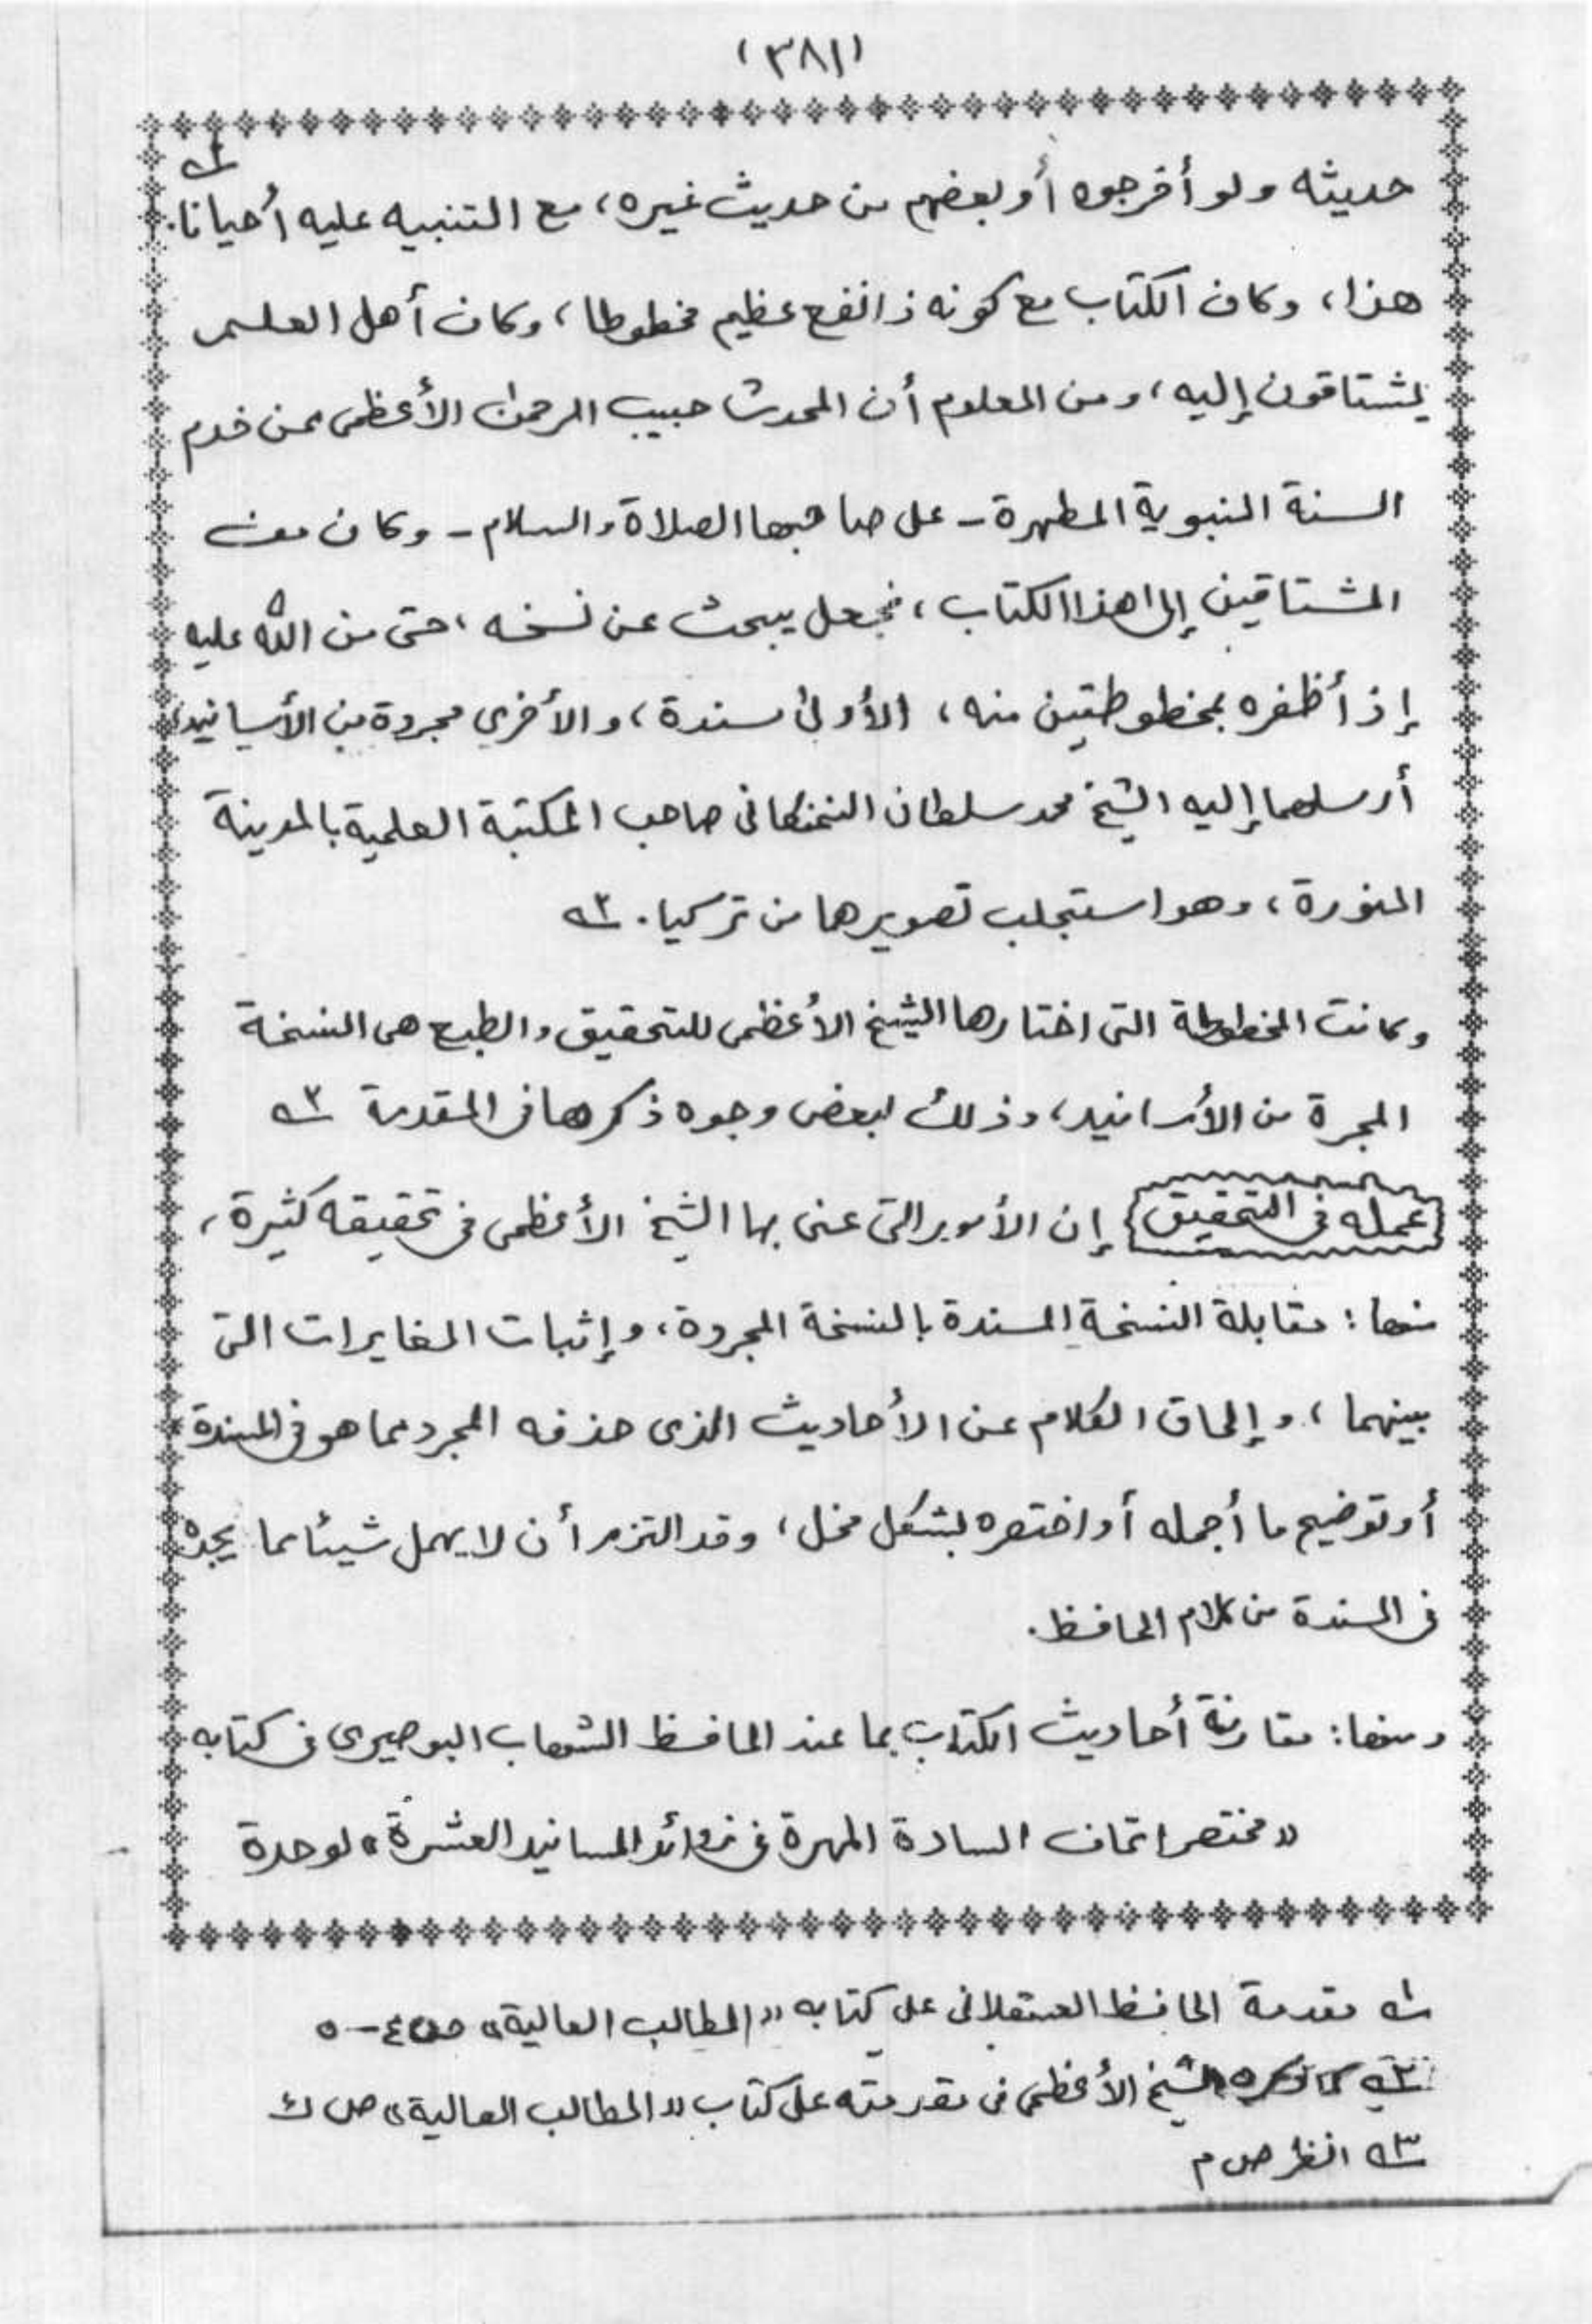 (٣٨١)
حديثه ولو أخرجوه أو بعضهم من حديث غيره، مع التنبيه عليه أحيانا. ١ه
هذا، وكان الكتاب مع كونه ذا نفع عظيم مخطوطا، وكان أهل العلم
يشتاقون إليه، ومن المعلوم أن المحدث حبيب الرحمن الأعظمى ممن خدم
السنة النبوية المطهرة - على صاحبها الصلاة والسلام - وكان من
المشتاقين إلى هذا الكتاب، فجعل يبحث عن نسخه، حتى من الله عليه
إذ أظفره بمخطوطتين منه، الأولى مسندة، والأخرى مجردة من الأسانيد،
أرسلهما إليه الشيخ محمد سلطان النمنكانى صاحب المكتبة العلمية بالمدينة
المنورة، وهو استجلب تصويرهما من تركيا. ٢ه
وكانت المخطوطة التى اختارها الشيخ الأعظمى للتحقيق والطبع هى النسخة
المجرة من الأسانيد، وذلك لبعض وجوه ذكرها فى المقدمة ٣ه
عمله فى التحقيق إن الأمور التى عنى بها الشيخ الأعظمى فى تحقيقه كثيرة،
منها: مقابلة النسخة المسندة بالنسخة المجردة، وإثبات المغايرات التى
بينهما، وإلحاق الكلام عن الأحاديث الذى حذفه المجرد مما هو فى المسندة
أو توضيح ما أجمله أو اختصره بشكل مخل، وقد التزم أن لا يهمل شيئا مما يجده
فى المسندة من كلام الحافظ.
ومنها: مقارنة أحاديث الكتاب بما عند الحافظ الشهاب البوصيرى فى كتابه
«مختصر اتحاف السادة المهرة فى زوائد المسانيد العشرة» لوحدة
١ه مقدمة الحافظ العسقلانى على كتابه «المطالب العالية» ص ٤-٥
٢ه كما ذكره الشيخ الأعظمى فى تقدمته على كتاب «المطالب العالية» ص ك
٣ه انظر ص م